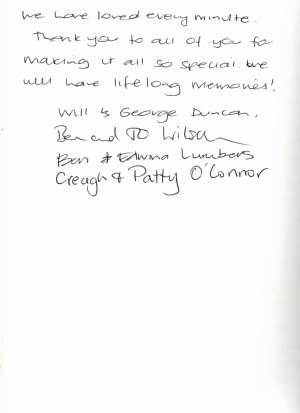 We have loved every minute.
Thank you to all of you for
making it all so special. We
will have lifelong memories!
Will & George Duncan.
Ben and JO Wilson
Ben & Edwina Lumbers
Creagh & Patty O'Connor